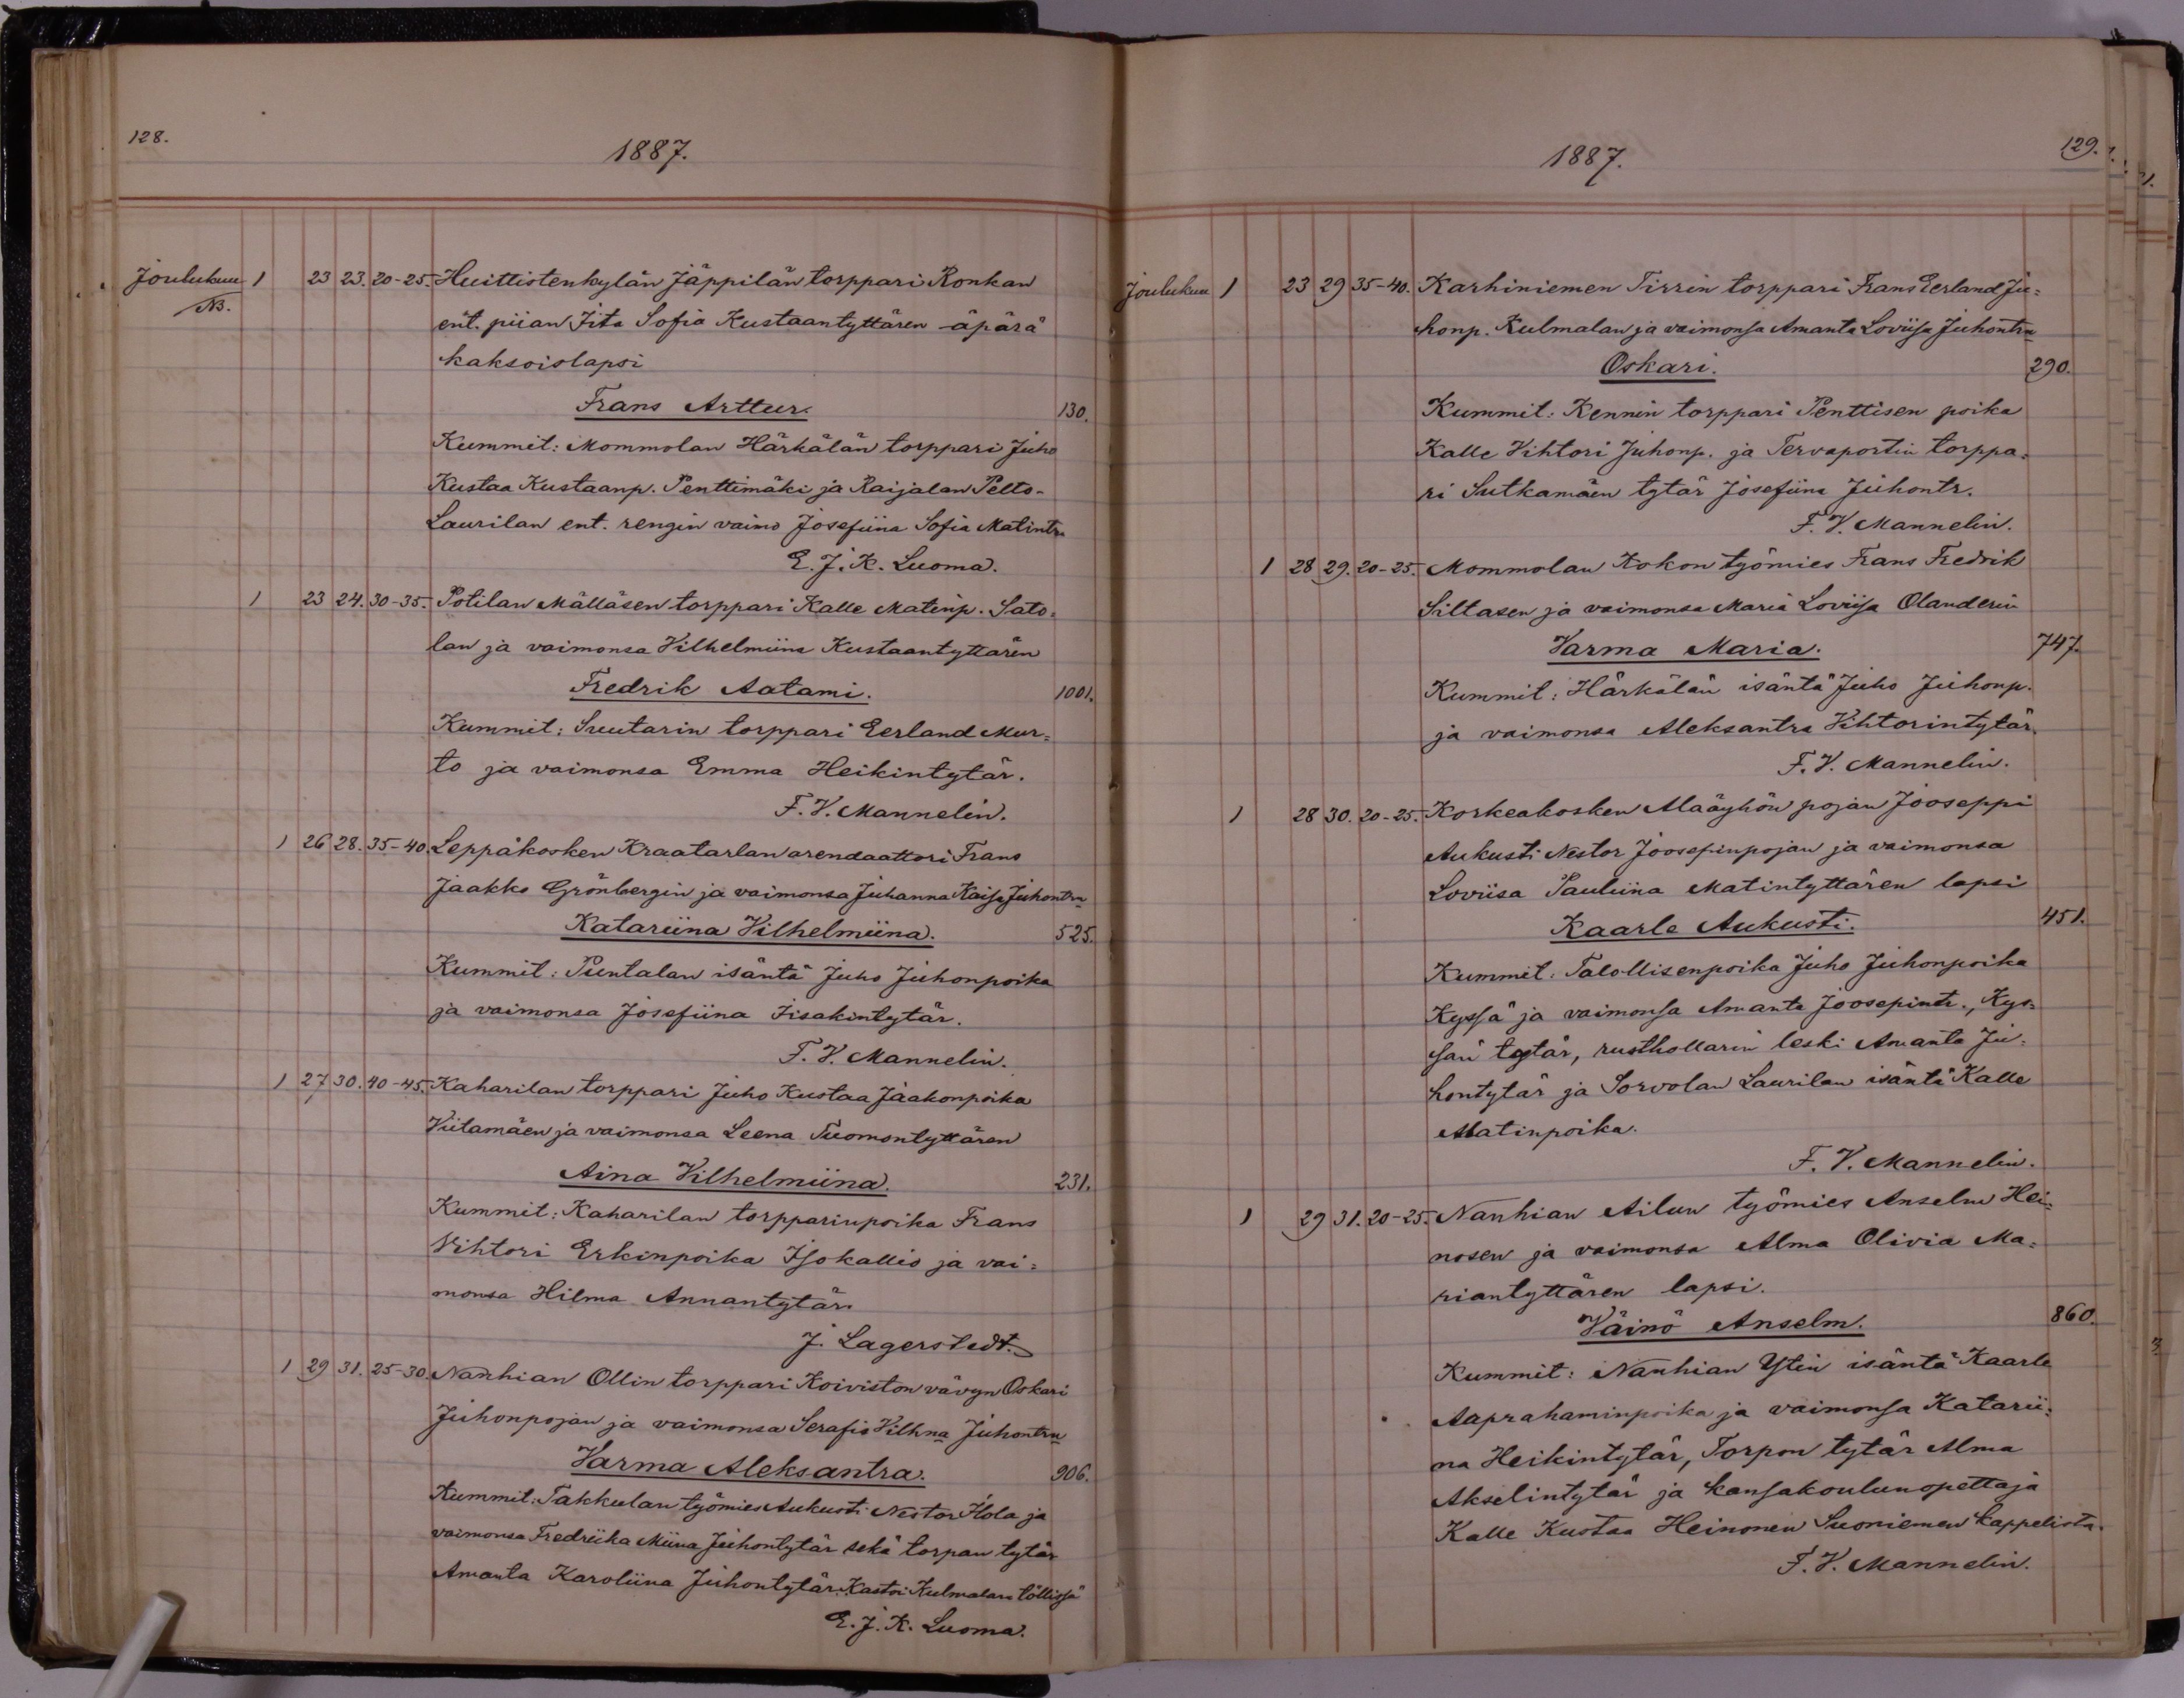 128.
1887.
Joulukuu 1 23 23. 20-25. Huittistenkylän Jäppilän torppari Ronkan
NB.
ent. piian Iita Sofia Kustaantyttären äpärä
kaksoislapsi
Frans Arttur. 130.
Kummit: Mommolan Härkälän torppari Juho
Kustaa Kustaanp. Penttimäki ja Raijalan Pelto-
Laurilan ent. rengin vaimo Josefiina Sofia Matintr.
E. J. K. Luoma.
1 23 24. 30-35. Potilan Mälläsen torppari Kalle Matinp. Sato-
lan ja vaimonsa Vilhelmiina Kustaantyttären
Fredrik Aatami. 1001.
Kummit: Suutarin torppari Eerland Mur-
to ja vaimonsa Emma Heikintytär.
F. V. Mannelin.
1 26 28. 35-40. Leppäkosken Kraatarlan arendaattori Frans
Jaakko Grönbergin ja vaimonsa Juhanna Kaisa Juhontrn
Katariina Vilhelmiina. 525.
Kummit: Puntalan isäntä Juho Juhonpoika
ja vaimonsa Josefiina Iisakintytär.
F. V. Mannelin.
1 27 30. 40-45. Kaharilan torppari Juho Kustaa Jaakonpoika
Viitamäen ja vaimonsa Leena Tuomontyttären
Aina Vilhelmiina. 231.
Kummit: Kaharilan torpparinpoika Frans
Vihtori Erkinpoika Isokallio ja vai-
monsa Hilma Annantytär.
J. Lagerstedt.
1 29 31. 25-30. Nanhian Ollin torppari Koiviston vävyn Oskari
Juhonpojan ja vaimonsa Serafia Vilhna Juhontrn
Varma Aleksantra. 906.
Kummit: Takkulan työmies Aukusti Nestor Hola ja
vaimonsa Fredriika Miina Juhontytär sekä torpan tytär
Amanta Karoliina Juhontytär. Kastoi Kulmalan töllissä
E. J. K. Luoma.
129.
1887.
Joulukuu 1 23 29 35-40. Karhiniemen Tirrin torppari Frans Eerland Ju-
honp. Kulmalan ja vaimonsa Amanta Loviisa Juhontrn
Oskari. 290.
Kummit: Kennin torppari Penttisen poika
Kalle Vihtori Juhonp. ja Tervaportin torppa-
ri Sutkamäen tytär Josefiina Juhontr.
F. V. Mannelin.
1 28 29. 20-25. Mommolan Kokon työmies Frans Fredrik
Siltasen ja vaimonsa Maria Loviisa Olanderin
Varma Maria. 747.
Kummit: Härkälän isäntä Juho Juhonp.
ja vaimonsa Aleksantra Vihtorintytär.
F. V. Mannelin.
1 28 30. 20-25. Korkeakosken Alaäyhön pojan Jooseppi
Aukusti Nestor Joosepinpojan ja vaimonsa
Loviisa Pauliina Matintyttären lapsi
Kaarle Aukusti. 451.
Kummit: Talollisenpoika Juho Juhonpoika
Kyssä ja vaimonsa Amanta Joosepintr., Kys-
sän tytär, rusthollarin leski Amanta Ju-
hontytär ja Sorvolan Laurilan isäntä Kalle
Matinpoika.
F. V. Mannelin.
1 29 31. 20-25. Nanhian Ailun työmies Anselm Hei-
nosen ja vaimonsa Alma Olivia Ma-
riantyttären lapsi.
Väinö Anselm. 860.
Kummit: Nanhian Ytin isäntä Kaarle
Aaprahaminpoika ja vaimonsa Katarii-
na Heikintytär, Torpon tytär Alma
Akselintytär ja kansakoulunopettaja
Kalle Kustaa Heinonen Suoniemen kappelista.
F. V. Mannelin.